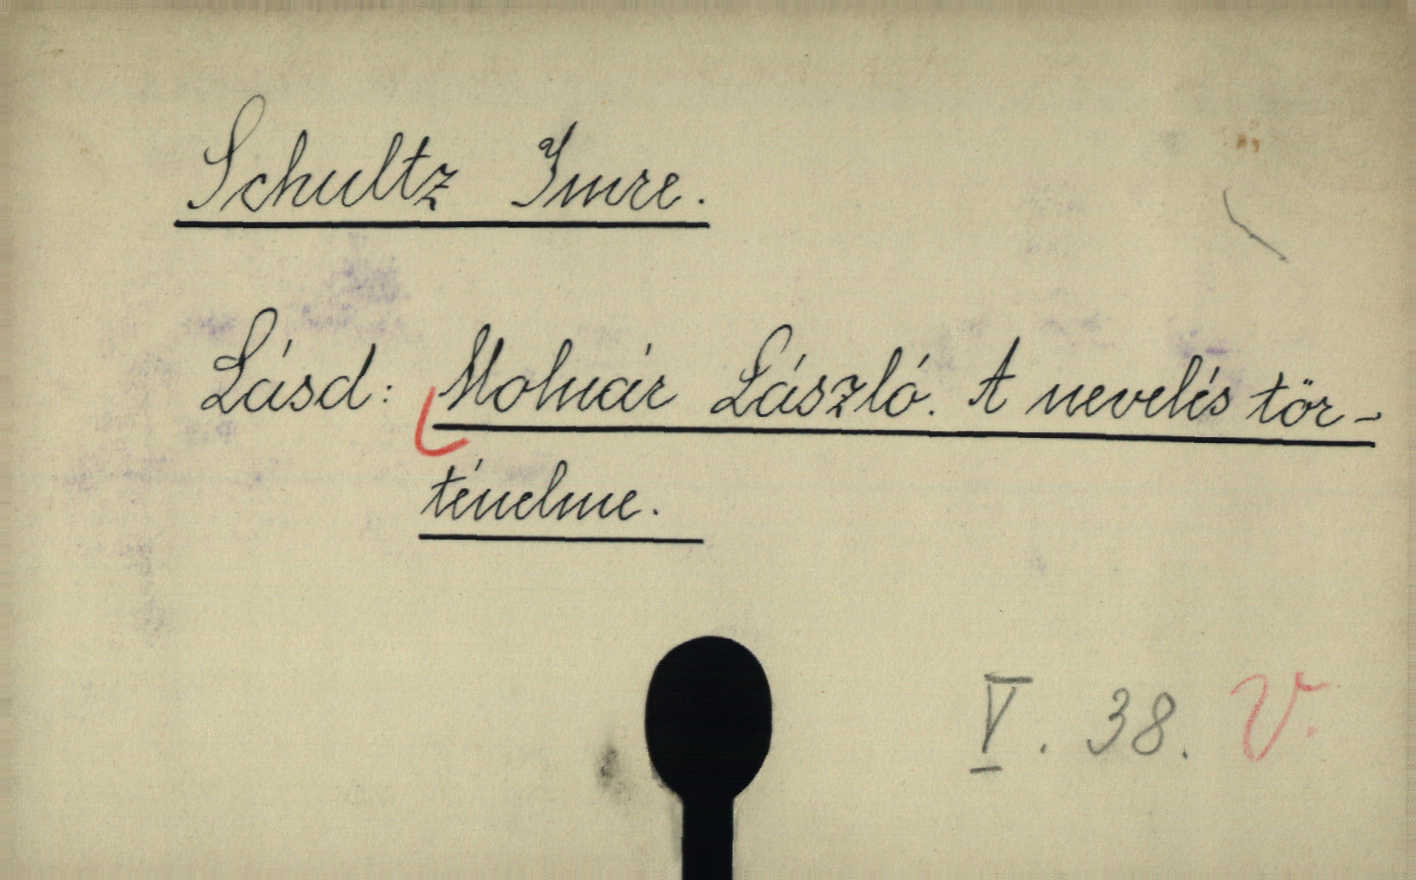 Schultz Imre.
Lásd: Molnár László. A nevelés tör-
ténelme.
V. 38. V.